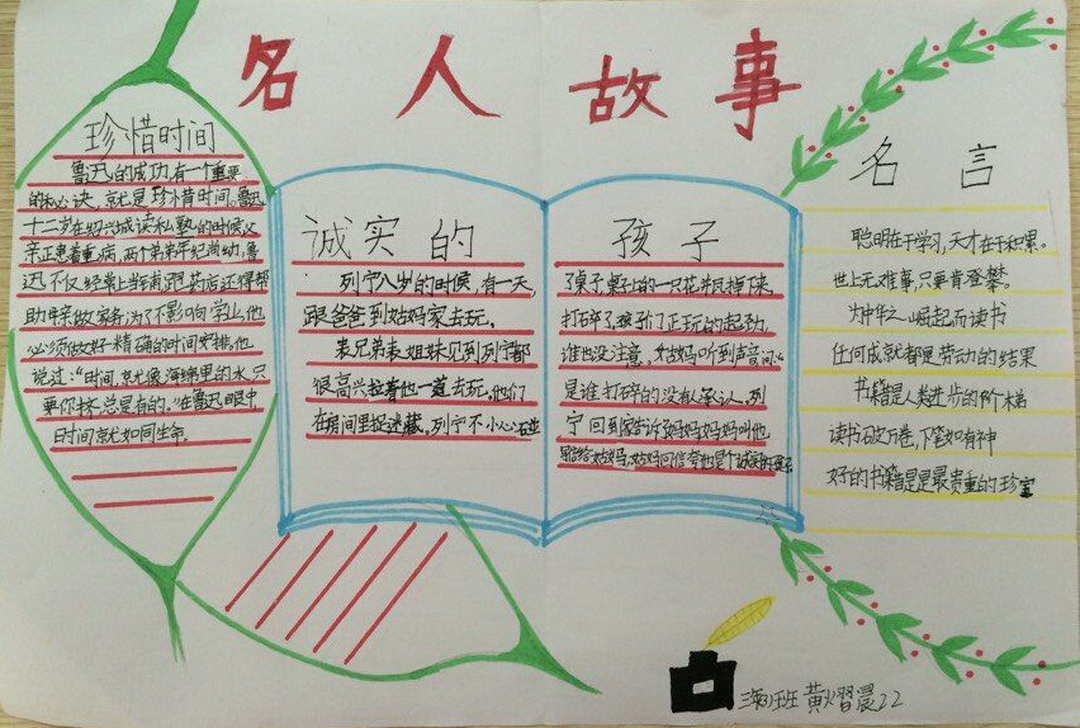 名人故事
珍惜时间
鲁迅的成功,有一个重要
的秘诀,就是珍惜时间。鲁迅
十二岁在绍兴城读私塾的时候,父
亲正患着重病,两个弟弟年纪尚幼,鲁
迅不仅经常上当铺,跑药店,还得帮
助母亲做家务,为了不影响学业,他
必须做好精确的时间安排。他
说过:“时间,就像海绵里的水,只
要你挤,总是有的。”在鲁迅眼中,
时间就如同生命。
诚实的
列宁八岁的时候,有一天,
跟爸爸到姑妈家去玩。
表兄弟表姐妹见到列宁都
很高兴拉着他一道去玩。他们
在房间里捉迷藏。列宁不小心碰
孩子
了桌子,桌子上的一只花瓶掉下来,
打碎了。孩子们正玩的起劲,
谁也没注意,姑妈听到声音问:“
是谁打碎的没有人承认。列
宁回到家告诉妈妈妈妈叫他
写信给姑妈。姑妈回信夸他是个诚实的孩子
名言
聪明在于学习,天才在于积累。
世上无难事,只要肯登攀。
为中华之崛起而读书
任何成就都是劳动的结果
书籍是人类进步的阶梯
读书破万卷,下笔如有神
好的书籍是是最贵重的珍宝
班 黄熠晨22